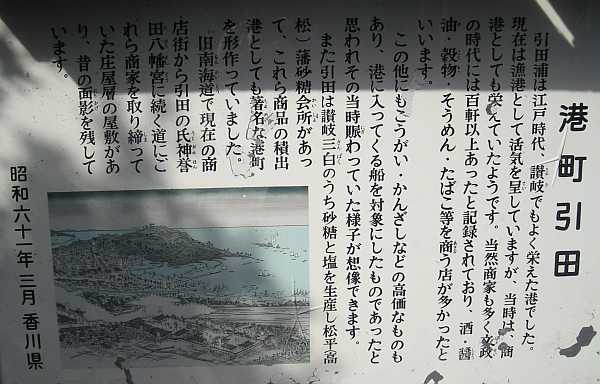 港町引田
引田浦は江戸時代、讃岐でもよく栄えた港でした。
現在は漁港として活気を呈していますが、当時は、商
港としても栄えていたようです。当然商家も多く文政
の時代には百軒以上あったと記録されており、酒・醤
油・穀物・そうめん・たばこ等を商う店が多かったと
いいます。
この他にもこうがい・かんざしなどの高価なものも
あり、港に入ってくる船を対象にしたものであったと
思われその当時賑わっていた様子が想像できます。
また引田は讃岐三白のうち砂糖と塩を生産し松平高
松藩砂糖会所があっ
て、これら商品の積出
港としても著名な港町
を形作っていました。
旧南海道で現在の商
店街から引田の氏神誉
田八幡宮に続く道にこ
れら商家を取り締って
いた庄屋層の屋敷があ
り、昔の面影を残して
います。
昭和六十一年三月 香川県